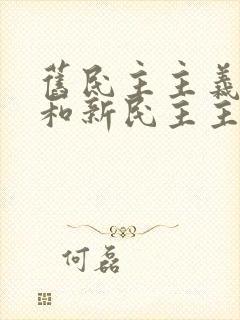 舊民主主義
和新民主主
何磊